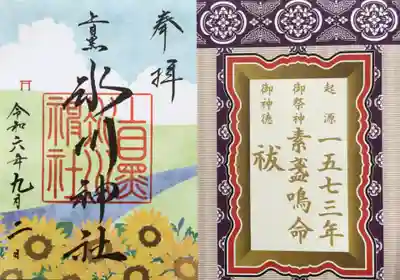 奉拝
上目黒
氷川神社
上目黒氷川神社
令和六年九月一日
起源 一五七三年
御祭神 素盞嗚命
御神徳 祓